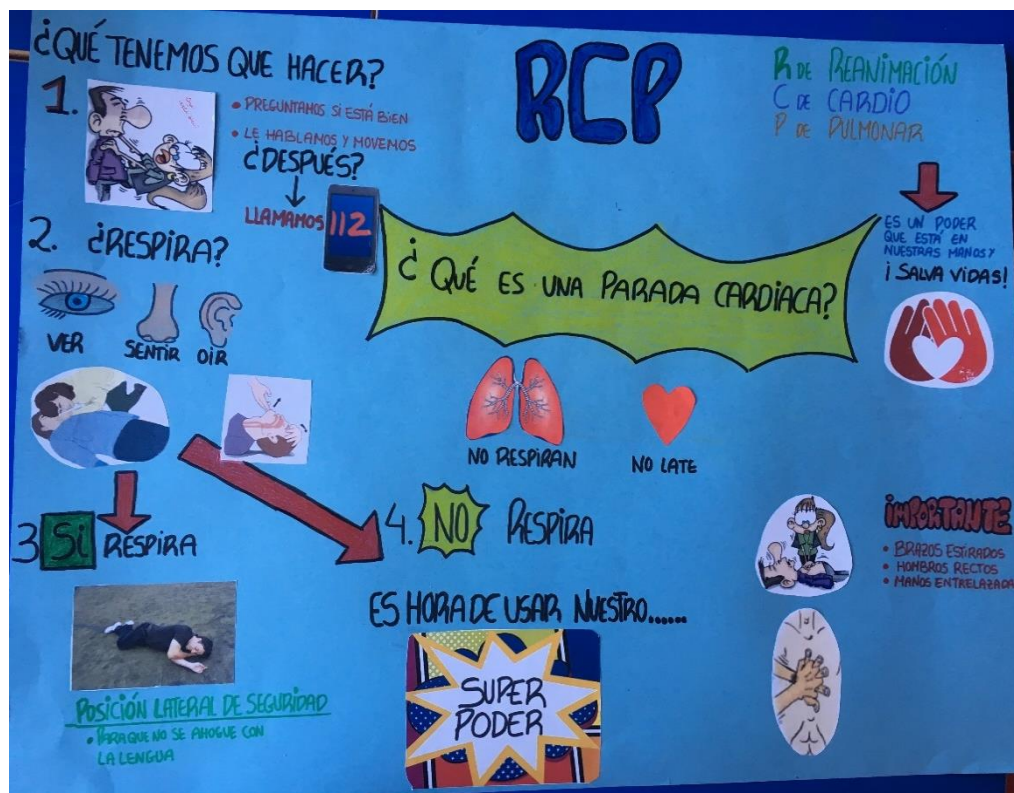 ¿QUÉ TENEMOS QUE HACER?
1.
• PREGUNTAMOS SI ESTÁ BIEN
• LE HABLAMOS Y MOVEMOS
¿DESPUÉS?
LLAMAMOS 112
2. ¿RESPIRA?
VER
SENTIR
OIR
3 SI RESPIRA
POSICIÓN LATERAL DE SEGURIDAD
• PARA QUE NO SE AHOGUE CON
LA LENGUA
RCP
R DE REANIMACIÓN
C DE CARDIO
P DE PULMONAR
ES UN PODER
QUE ESTÁ EN
NUESTRAS MANOS Y
¡SALVA VIDAS!
¿QUÉ ES UNA PARADA CARDIACA?
NO RESPIRAN
NO LATE
4. NO RESPIRA
ES HORA DE USAR NUESTRO......
SUPER
PODER
IMPORTANTE
• BRAZOS ESTIRADOS
• HOMBROS RECTOS
• MANOS ENTRELAZADA